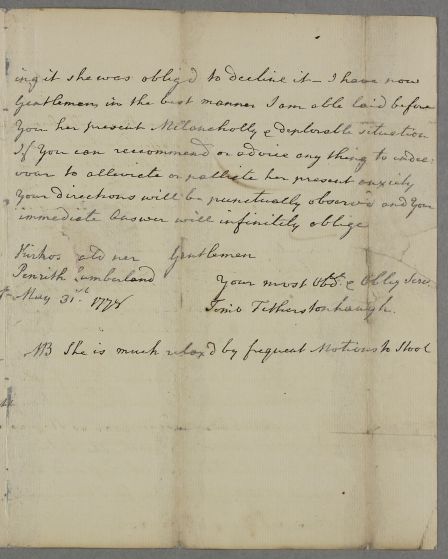 ing it she was oblig'd to decline it – I have now
Gentlemen, in the best manner I am able laid before
You her present Melancholly & deplorable situation
If You can reccommend or advice any thing to endea:
vour to alleviate or palliate her present anxiety
Your directions will be punctually observ'd and Your
immediate Answer will infinitely oblige
Kirkos ald ner Gentlemen
Penrith Cumberland Your most Obdt. & Oblig Serv.
May 31st. 1774 Timo Fetherstonhaugh.
NB She is much relax'd by frequent Motions to Stool